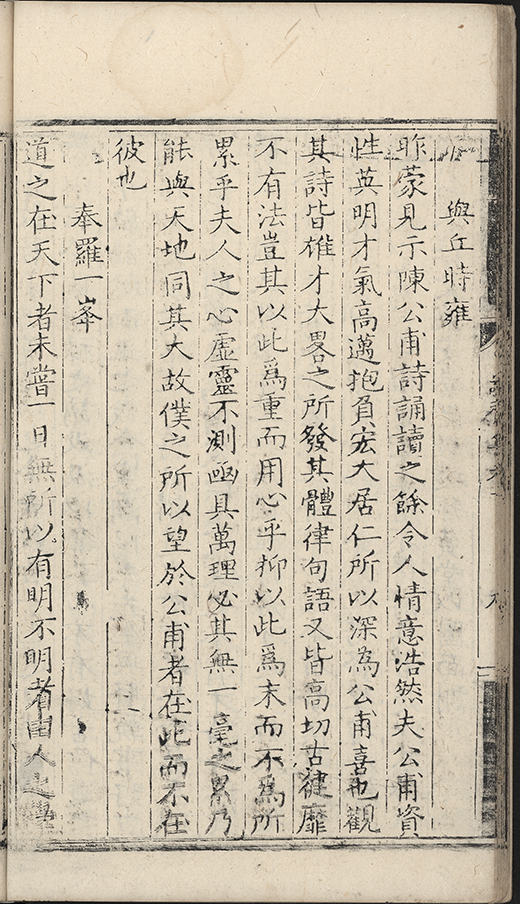 與丘時雍
昨蒙見示陳公甫詩誦讀之餘令人情意浩然夫公甫資
性英明才氣高邁抱負宏大居仁所以深為公甫喜也觀
其詩皆雄才大畧之所發其體律句語又皆高切古健靡
不有法豈其以此為重而用心乎抑以此為末而不為所
累乎夫人之心虛靈不測凾具萬理必其無一毫之累乃
能與天地同其大故僕之所以望於公甫者在此而不在
彼也
奉羅一峯
道之在天下者未嘗一日無所以有明不明者由人之學